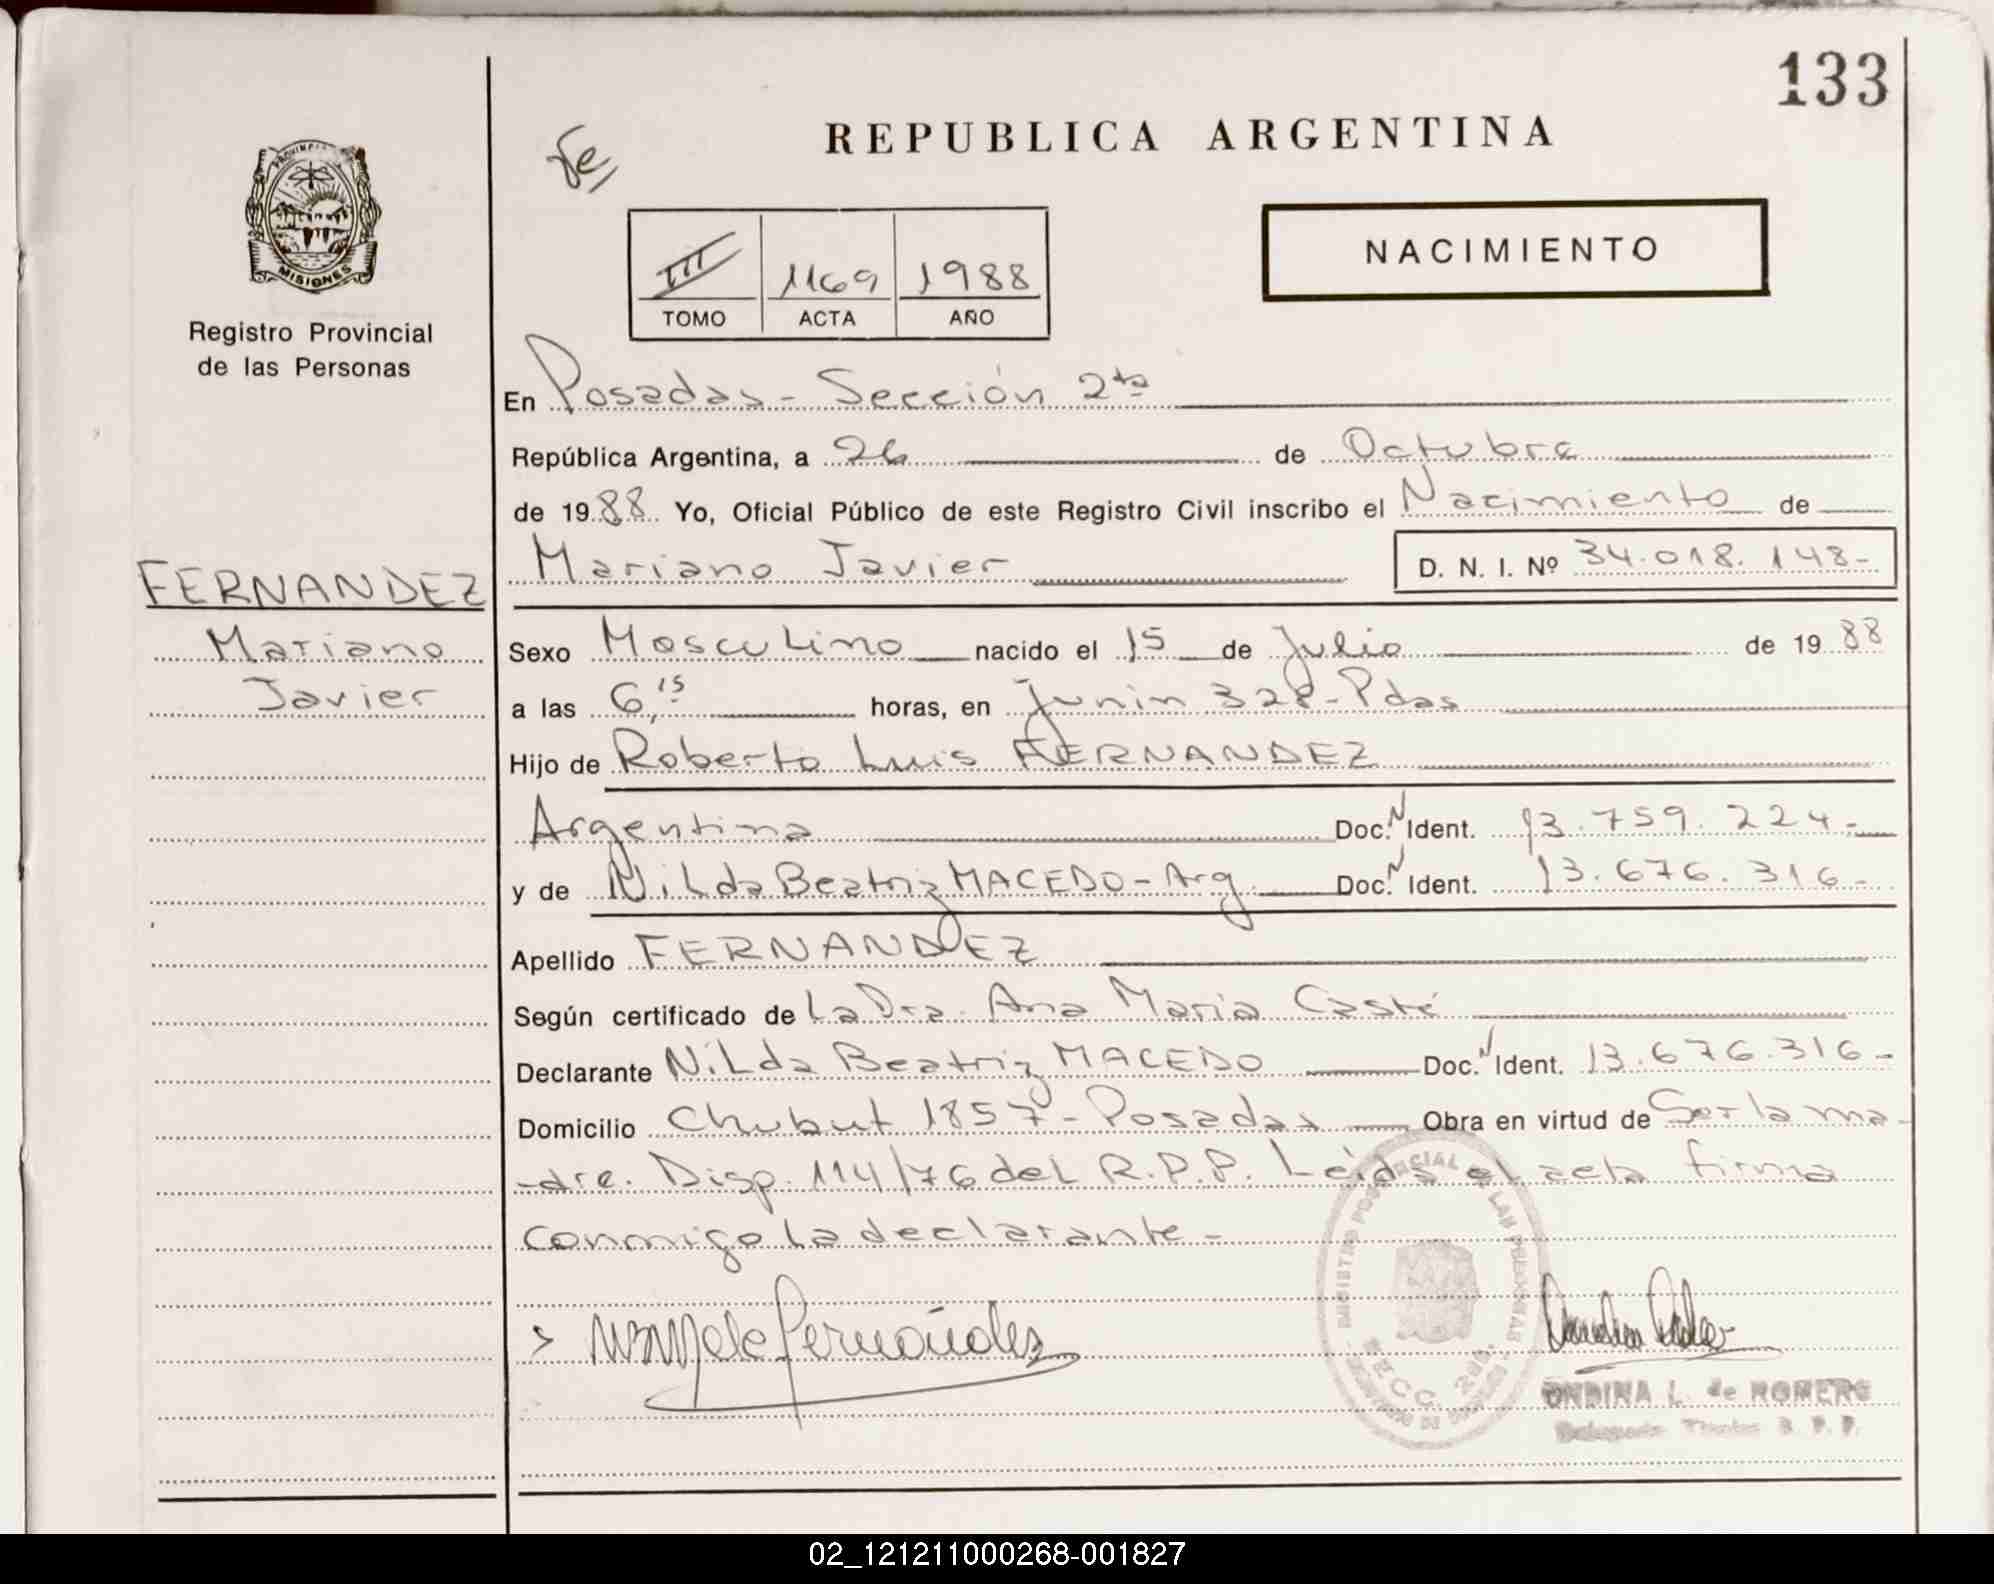 133
REPUBLICA ARGENTINA
PROVINCIA
MISIONES
Registro Provincial
de las Personas
III 1169 1988
TOMO ACTA AÑO
NACIMIENTO
En Posadas - Sección 2ta
República Argentina, a 26 de Octubre
de 1988 Yo, Oficial Público de este Registro Civil inscribo el Nacimiento de
Mariano Javier D. N. I. Nº 34.018.148-
FERNANDEZ
Mariano
Javier
Sexo Masculino nacido el 15 de Julio de 1988
a las 6,15 horas, en Junin 328 - Pdas
Hijo de Roberto Luis FERNANDEZ
Argentina Doc. N Ident. 13.759.224-
y de Nilda Beatriz MACEDO - Arg. Doc. N Ident. 13.676.316-
Apellido FERNANDEZ
Según certificado de La Dra. Ana Maria Casté
Declarante Nilda Beatriz MACEDO Doc. N Ident. 13.676.316-
Domicilio Chubut 1857 - Posadas Obra en virtud de Ser la ma-
-dre. Disp. 114/76 del R.P.P. Leída el acta firma
conmigo la declarante -
SECC. 2da.
ONDINA L. de ROMERO
R. P. P.
02_121211000268-001827